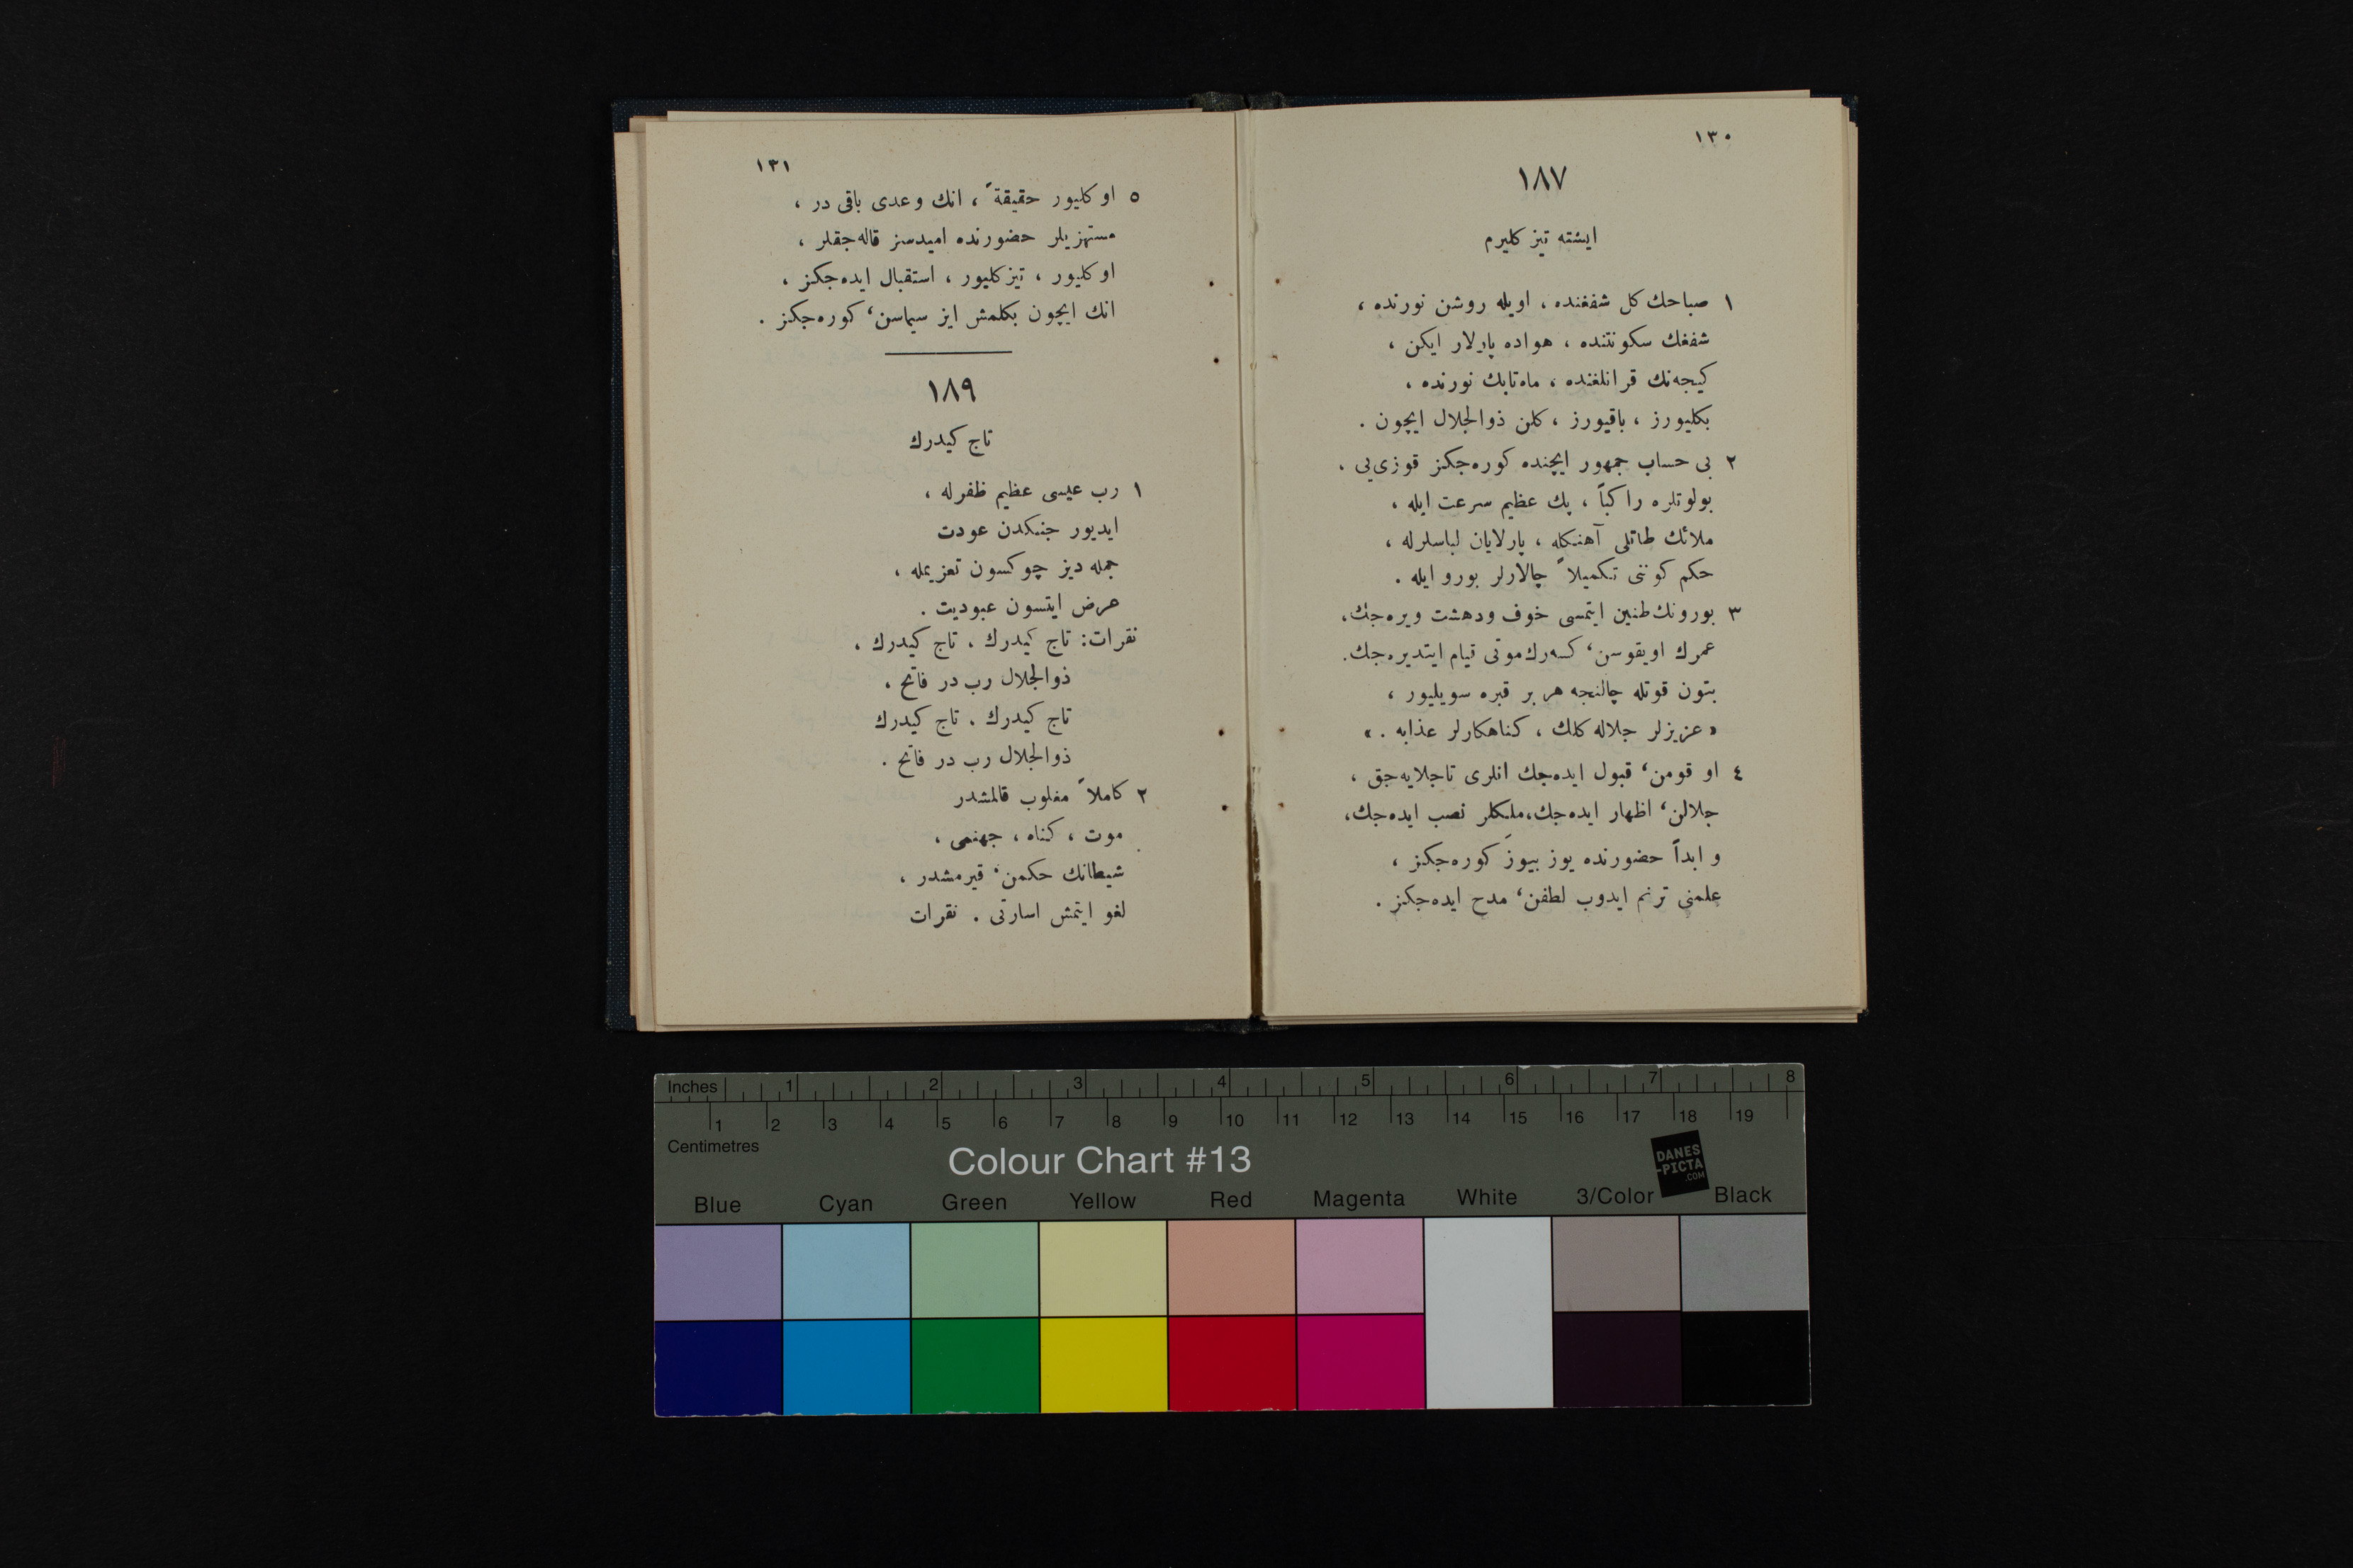 ١٣٠
١٨٧
ايشته تيز كليرم
١ صباحك كل شفغنده ، اويله روشن نورنده ،
شفغك سكونتنده ، هواده پاريلار ايكن ،
كيجه‌نك قرانلغنده ، ماه‌تابك نورنده ،
بكليورز ، باقيورز ، كلن ذوالجلال ايچون .
٢ بى حساب جمهور ايچنده كوره‌جكز قوزى‌يى ،
بولوتلره راكباً ، پك عظيم سرعت ايله ،
ملائك طاتلى آهنكله ، پارلايان لباسلرله ،
حكم كوننى تكميلاً چالارلر بورو ايله .
٣ بورونك طنين ايتمسى خوف ودهشت ويره‌جك،
عمرك اويقوسن، كسه‌رك موتى قيام ايتديره‌جك.
بتون قوتله چالنجه هر بر قبره سويليور ،
« عزيزلر جلاله كلك ، كناهكارلر عذابه . »
٤ او قومن، قبول ايده‌جك انلرى تاجلايه‌جق ،
جلالن، اظهار ايده‌جك،ملكلر نصب ايده‌جك،
و ابداً حضورنده يوز بيوز كوره‌جكز ،
علمنى ترنم ايدوب لطفن، مدح ايده‌جكز .
١٣١
٥ او كليور حقيقةً ، انك وعدى باقى در ،
مستهزيلر حضورنده اميدسز قاله‌جقلر ،
او كليور ، تيز كليور ، استقبال ايده‌جكز ،
انك ايچون بكلمش ايز سيماسن، كوره‌جكز .
١٨٩
تاج كيدرك
١ رب عيسى عظيم ظفرله ،
ايديور جنكدن عودت
جمله ديز چوكسون تعزيمله ،
عرض ايتسون عبوديت .
نقرات: تاج كيدرك ، تاج كيدرك ،
ذوالجلال رب در فاتح ،
تاج كيدرك ، تاج كيدرك
ذوالجلال رب در فاتح .
٢ كاملاً مغلوب قالمشدر
موت ، كناه ، جهنمى ،
شيطانك حكمن، قيرمشدر ،
لغو ايتمش اسارتى . نقرات
Inches 1 2 3 4 5 6 7 8
1 2 3 4 5 6 7 8 9 10 11 12 13 14 15 16 17 18 19
Centimetres
Colour Chart #13
DANES
-PICTA
.COM
Blue Cyan Green Yellow Red Magenta White 3/Color Black